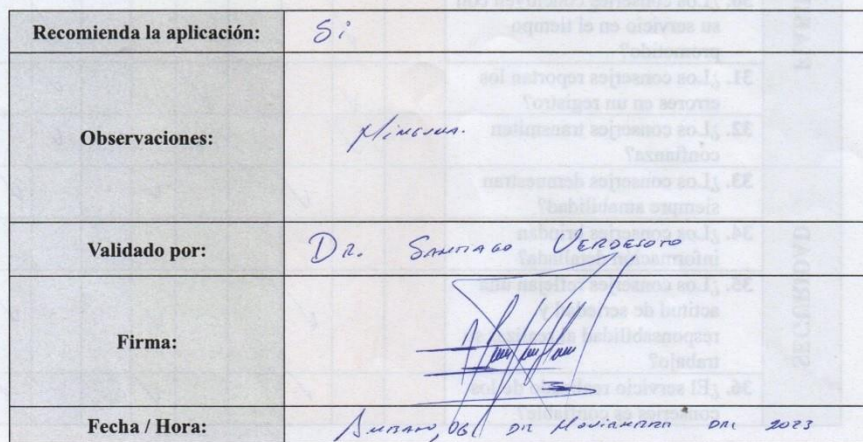 Recomienda la aplicación: Si
Observaciones: Ninguna.
Validado por: DR. SANTIAGO VERDESOTO
Firma:
Fecha / Hora: AMBATO, 06 DE NOVIEMBRE DEL 2023